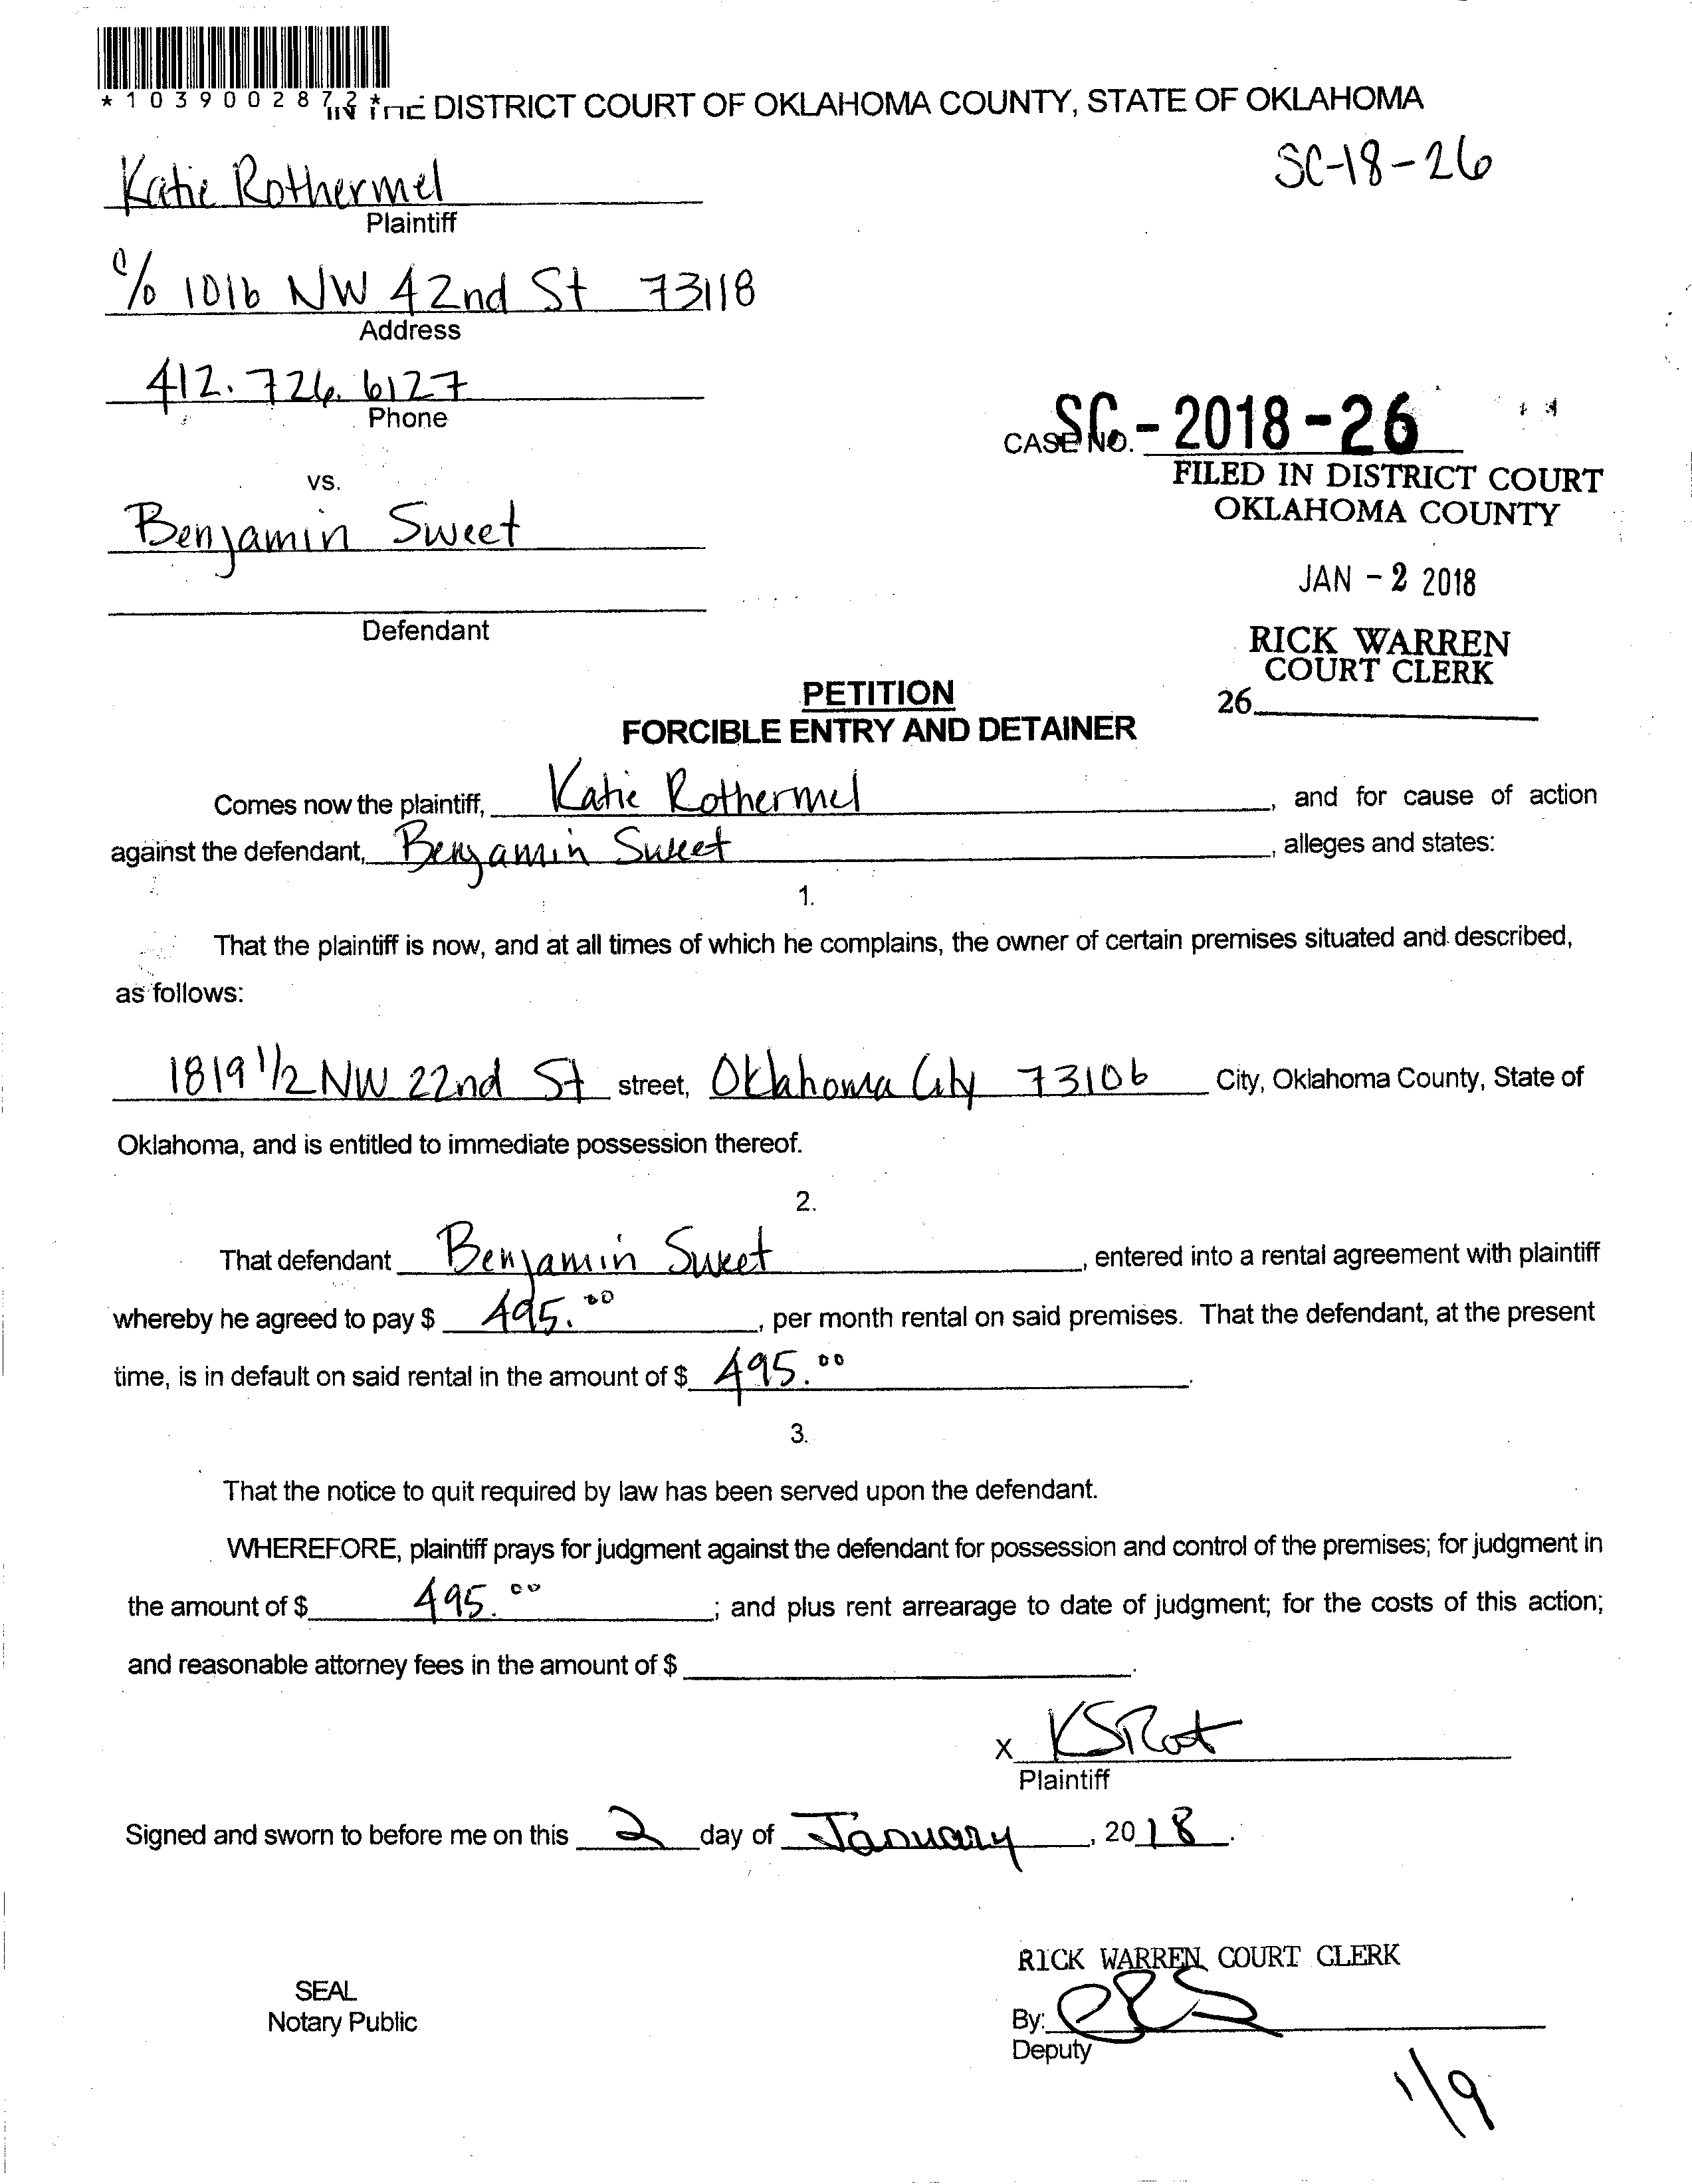 *1039002872*
IN THE DISTRICT COURT OF OKLAHOMA COUNTY, STATE OF OKLAHOMA
SC-18-26
Katie Rothermel
Plaintiff
c/o 1016 NW 42nd St 73118
Address
412.726.6127
Phone
CASE NO. SC-2018-26
FILED IN DISTRICT COURT
OKLAHOMA COUNTY
vs.
Benjamin Sweet
JAN - 2 2018
Defendant
RICK WARREN
COURT CLERK
26
PETITION
FORCIBLE ENTRY AND DETAINER
Comes now the plaintiff, Katie Rothermel, and for cause of action
against the defendant, Benjamin Sweet, alleges and states:
1.
That the plaintiff is now, and at all times of which he complains, the owner of certain premises situated and described,
as follows:
1819 1/2 NW 22nd St street, Oklahoma City 73106 City, Oklahoma County, State of
Oklahoma, and is entitled to immediate possession thereof.
2.
That defendant Benjamin Sweet, entered into a rental agreement with plaintiff
whereby he agreed to pay $ 495.00, per month rental on said premises. That the defendant, at the present
time, is in default on said rental in the amount of $ 495.00.
3.
That the notice to quit required by law has been served upon the defendant.
WHEREFORE, plaintiff prays for judgment against the defendant for possession and control of the premises; for judgment in
the amount of $ 495.00; and plus rent arrearage to date of judgment; for the costs of this action;
and reasonable attorney fees in the amount of $ .
x KSRot
Plaintiff
Signed and sworn to before me on this 2 day of January, 2018.
RICK WARREN COURT CLERK
SEAL
Notary Public
By:
Deputy
1/9